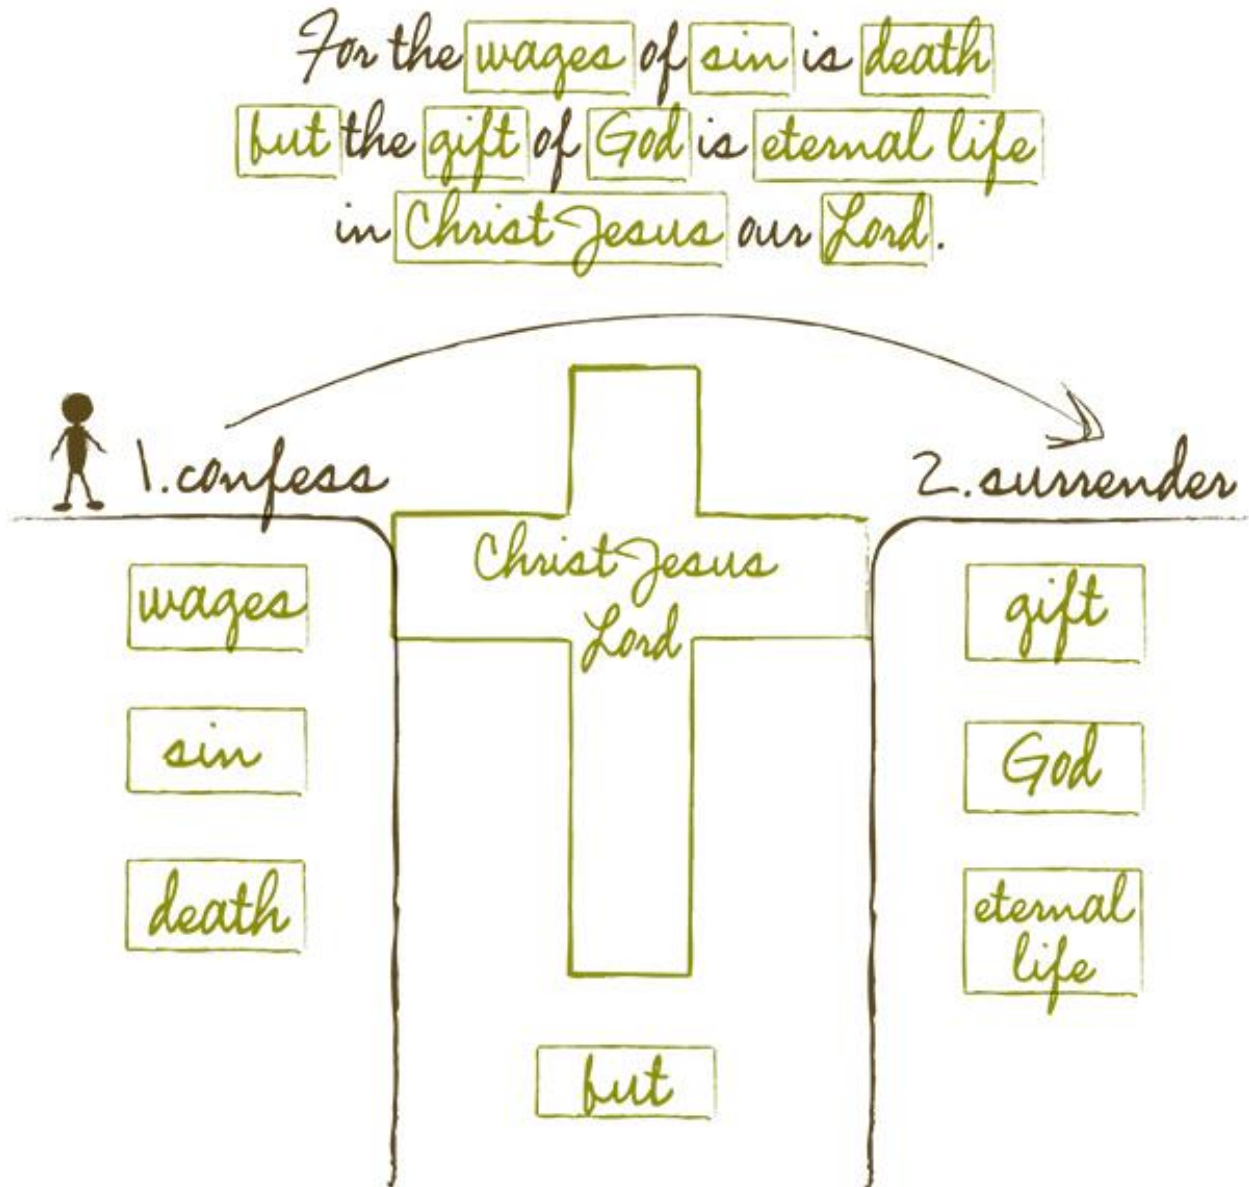 For the wages of sin is death
but the gift of God is eternal life
in Christ Jesus our Lord.
1. confess
2. surrender
Christ Jesus
Lord
wages
sin
death
gift
God
eternal
life
but